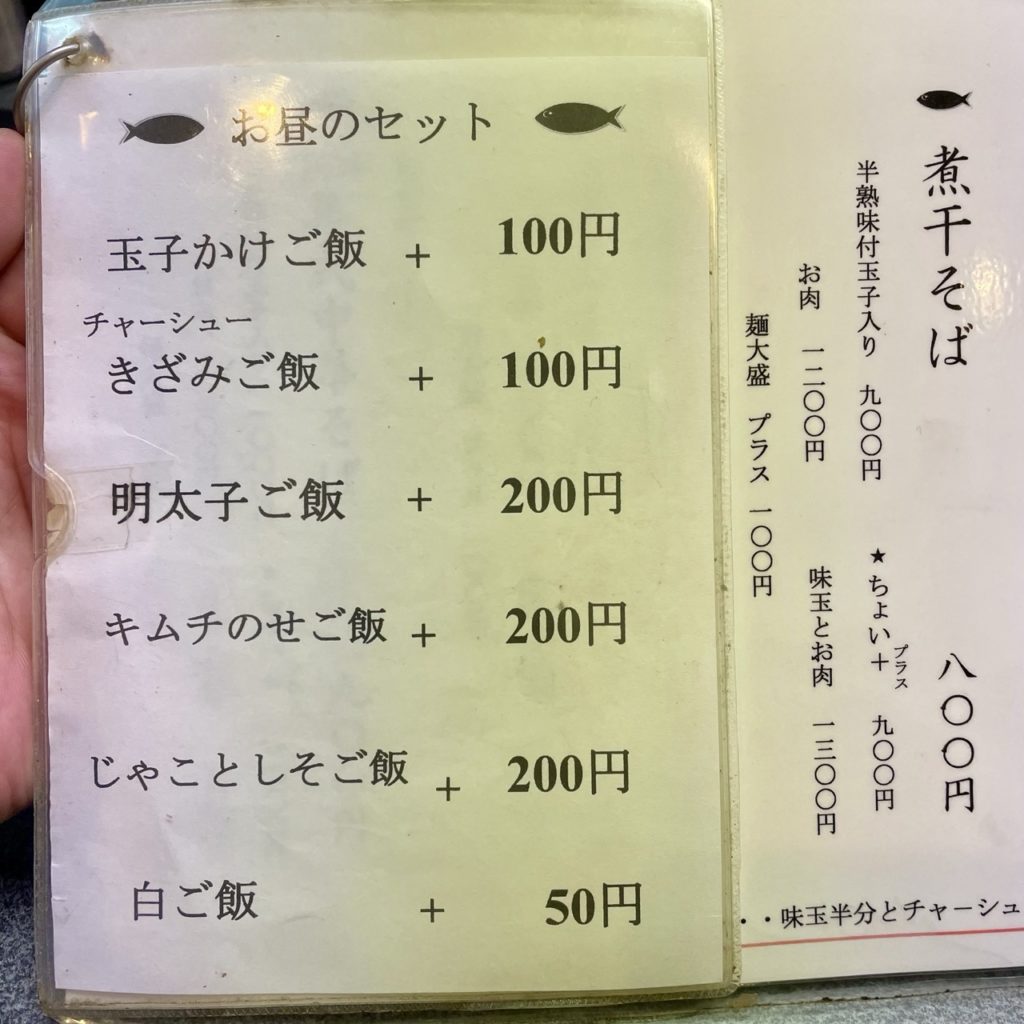 お昼のセット
玉子かけご飯 + 100円
チャーシュー
きざみご飯 + 100円
明太子ご飯 + 200円
キムチのせご飯 + 200円
じゃことしそご飯 + 200円
白ご飯 + 50円
煮干そば 八〇〇円
半熟味付玉子入り 九〇〇円
★ちょい+ プラス 九〇〇円
お肉 一二〇〇円
味玉とお肉 一三〇〇円
麺大盛 プラス 一〇〇円
・・味玉半分とチャーシュ